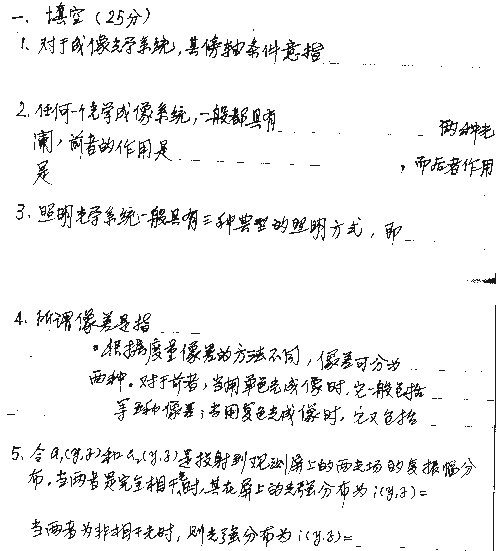 一、填空（25分）
1. 对于成像光学系统，其傍轴条件意指
2. 任何一个光学成像系统，一般都具有 两种光
阑，前者的作用是 ，而后者作用
是
3. 照明光学系统一般具有三种典型的照明方式，即
4. 所谓像差是指
。根据度量像差的方法不同，像差可分为
两种。对于前者，当用单色光成像时，它一般包括
等五种像差；当用复色光成像时，它又包括
5. 令a₁(y,z)和a₂(y,z)是投射到观测屏上的两光场的复振幅分
布。当两者是完全相干时，其在屏上的光强分布为i(y,z)=
当两者为非相干光时，则光强分布为i(y,z)=